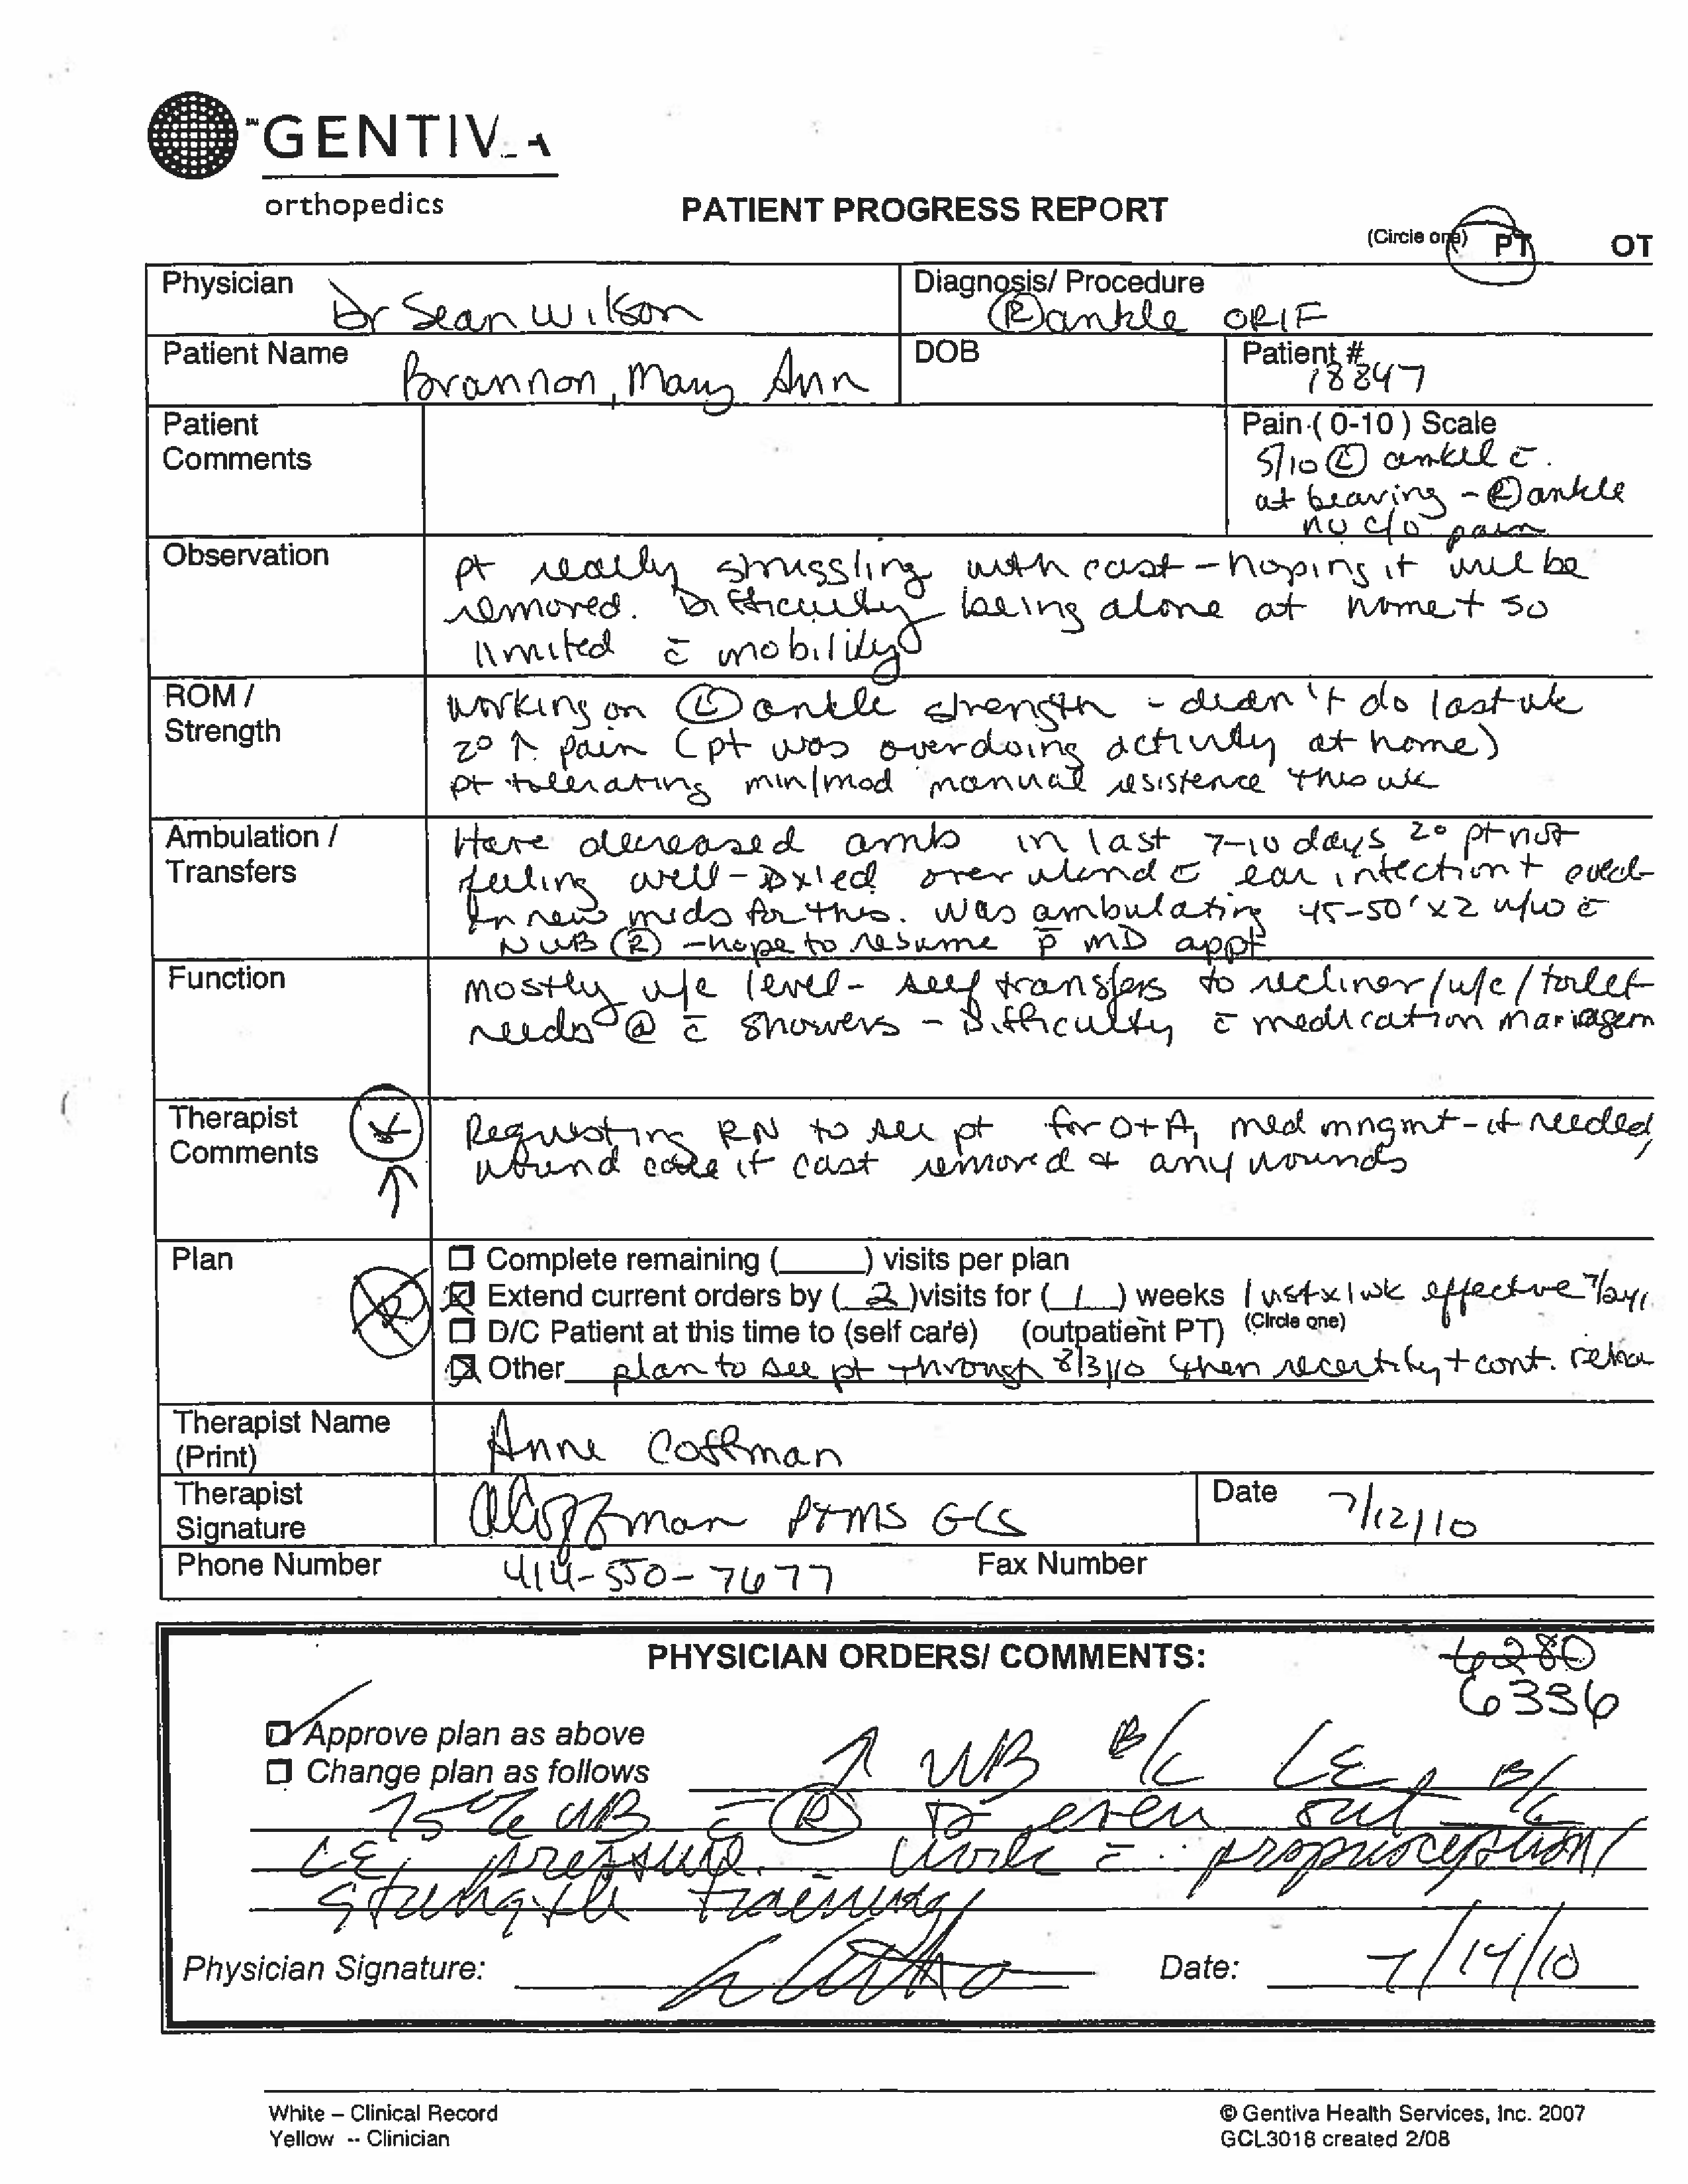 GENTIVA
orthopedics
PATIENT PROGRESS REPORT
(Circle one) PT OT
Physician Dr Sean Wilson
Diagnosis/ Procedure Ⓡ ankle ORIF
Patient Name Brannon, Mary Ann
DOB
Patient # 18847
Patient Comments
Pain (0-10) Scale
5/10 Ⓛ ankle c̄
wt bearing - Ⓡ ankle
no c/o pain
Observation
pt really struggling with cast - hoping it will be
removed. Difficulty being alone at home + so
limited c̄ mobility
ROM /
Strength
working on Ⓛ ankle strength - didn't do last wk
2° ↑ pain (pt was overdoing activity at home)
pt tolerating min/mod manual resistence this wk
Ambulation /
Transfers
Have decreased amb in last 7-10 days 2° pt not
feeling well - Dx'ed over wkend c̄ ear infection +
new meds for this. Was ambulating 45-50' x 2 w/w c̄
NWB Ⓡ - hope to resume p̄ MD appt
Function
mostly w/c level - self transfers to recliner/w/c/toilet
needs @ c̄ showers - Difficulty c̄ medication managem
Therapist
Comments
Requesting RN to see pt for O+A, med mngmt - if needed,
wound care if cast removed & any wounds
Plan
☐ Complete remaining (____) visits per plan
☒ Extend current orders by ( 2 )visits for ( 1 ) weeks 1 vst x 1 wk effective
☐ D/C Patient at this time to (self care) (outpatient PT) (Circle one)
☒ Other plan to see pt through 8/3/10 then recertify + cont. reha
Therapist Name
(Print)
Anne Coffman
Therapist
Signature
ACoffman PT MS GCS
Date 7/12/10
Phone Number 414-550-7677
Fax Number
PHYSICIAN ORDERS/ COMMENTS:
6280
6336
☑ Approve plan as above
☐ Change plan as follows ↑ WB B/L LE, B/L
75% WB c̄ Ⓡ to even out B/L
LE pressure. Work c̄ proprioception/
strength training
Physician Signature:
Date: 7/14/10
White – Clinical Record
Yellow -- Clinician
© Gentiva Health Services, Inc. 2007
GCL3018 created 2/08